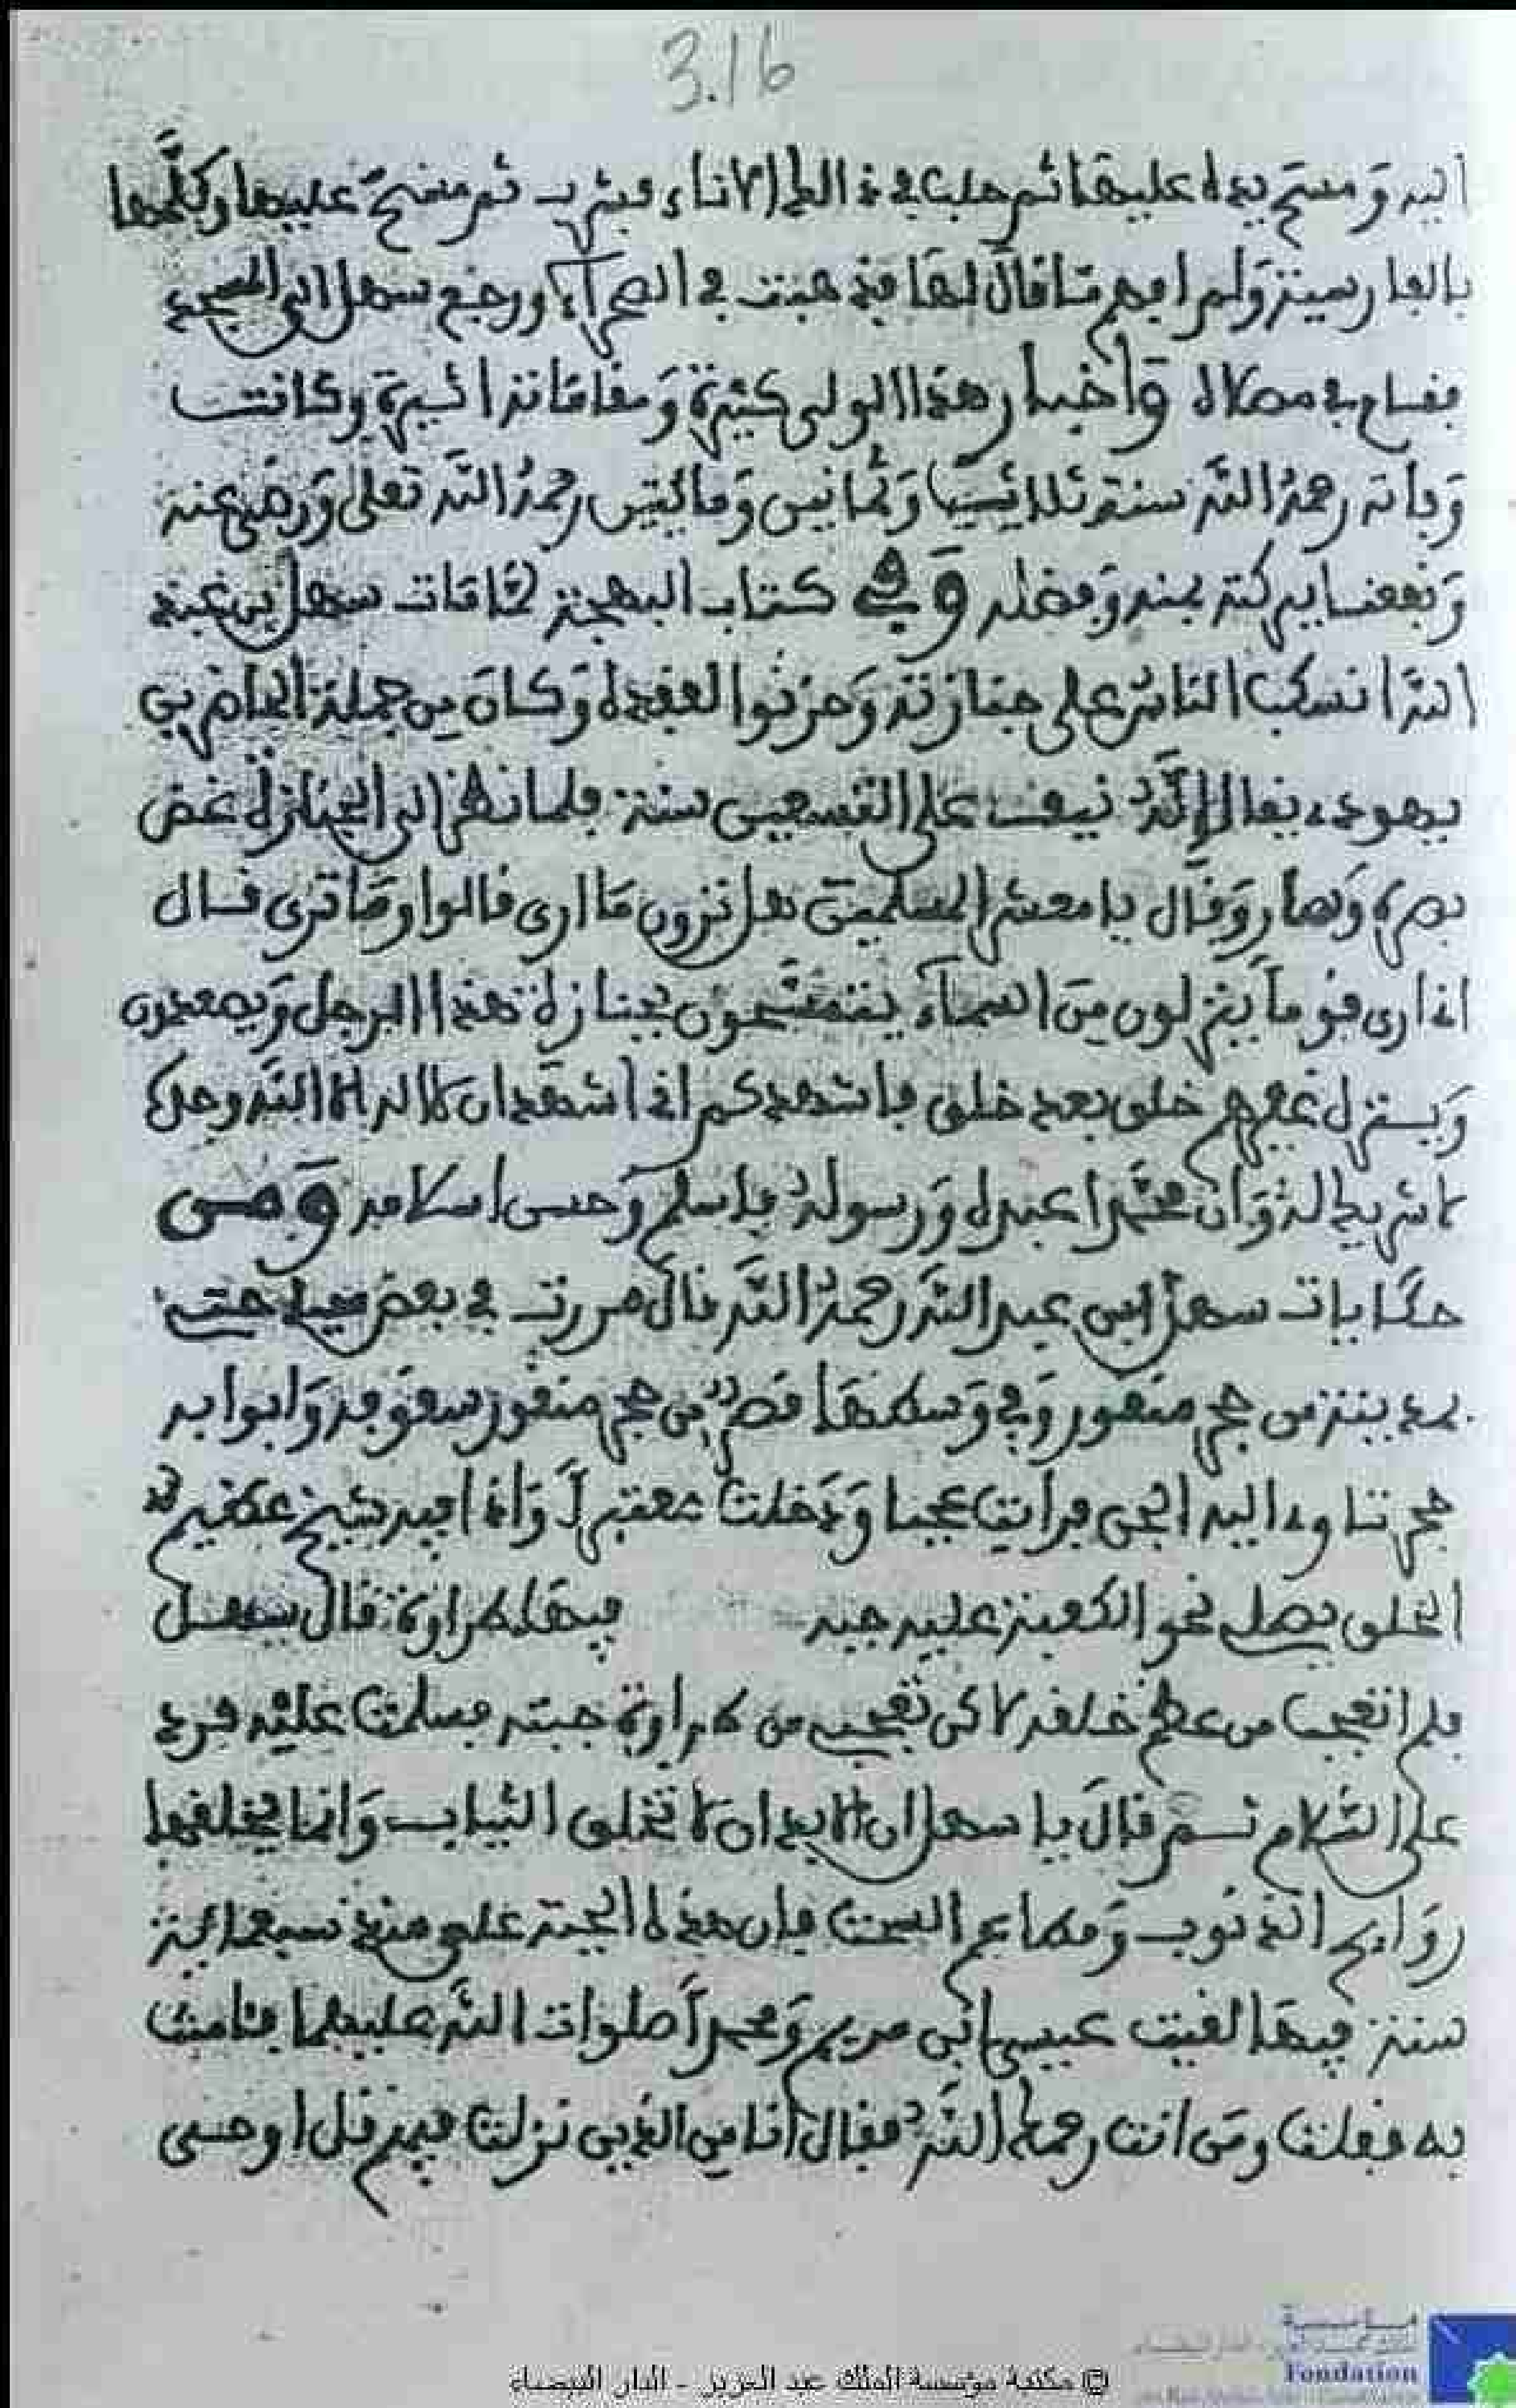 3.16
اليه ومسح يده عليها ثم حلب في ذلك الاناء فشرب ثم مسح عليها وكلمها
بالفارسية ولم افهم ما قال لها فذهبت في الصحراء ورجع سهل الى المسجد
فقام في مصلاه واخبار هذا الولي كثيرة ومقاماته اثيرة وكانت
وفاته رحمه الله سنة ثلاث وثمانين ومائتين رحمه الله تعلى ورضي عنه
ونفعنا ببركته بمنه وفضله وفي كتاب البهجة لما مات سهل بن عبد
الله انكب الناس على جنازته وحزنوا لفقده وكان من جملة
يهودي يقال انه نيف على التسعين سنة فلما نظر الى الجنازة غض
بصره وصار وقال يا معشر المسلمين هل ترون ما ارى قالوا وما ترى قال
اني ارى قوما ينزلون من السماء يتمسحون بجنازة هذا الرجل ويصعدون
وينزل غيرهم خلق بعد خلق فاشهدكم اني اشهد ان لا اله الا الله وحده
لا شريك له وان محمدا عبده ورسوله فاسلم وحسن اسلامه ومن
حكايات سهل ابن عبد الله رحمه الله قال مررت في بعض سياحتي
بمدينة من حجر منقور وفي وسطها قصر من حجر منقور سقوفه وابوابه
حجر تناوي اليه الجن فرايت عجبا ودخلت معتبرا واذا فيه شيخ عظيم
الخلق يصلي نحو الكعبة عليه جبة فيها طراوة قال سهل
فلم اتعجب من عظم خلقه لاكن تعجبي من طراوة جبته فسلمت عليه فرد
علي السلام ثم قال يا سهل ان الابدان لا تخلق الثياب وانما يخلقها
روايح الذنوب ومطاعم السحت فان هذه الجبة علي منذ سبعمائة
سنة فيها لقيت عيسى ابن مريم ومحمدا صلوات الله عليهما فامنت
به فقلت ومن انت رحمك الله فقال انا من الذين نزلت فيهم قل اوحي
© مكتبة مؤسسة الملك عبد العزيز - الدار البيضاء
مؤسسة
Fondation